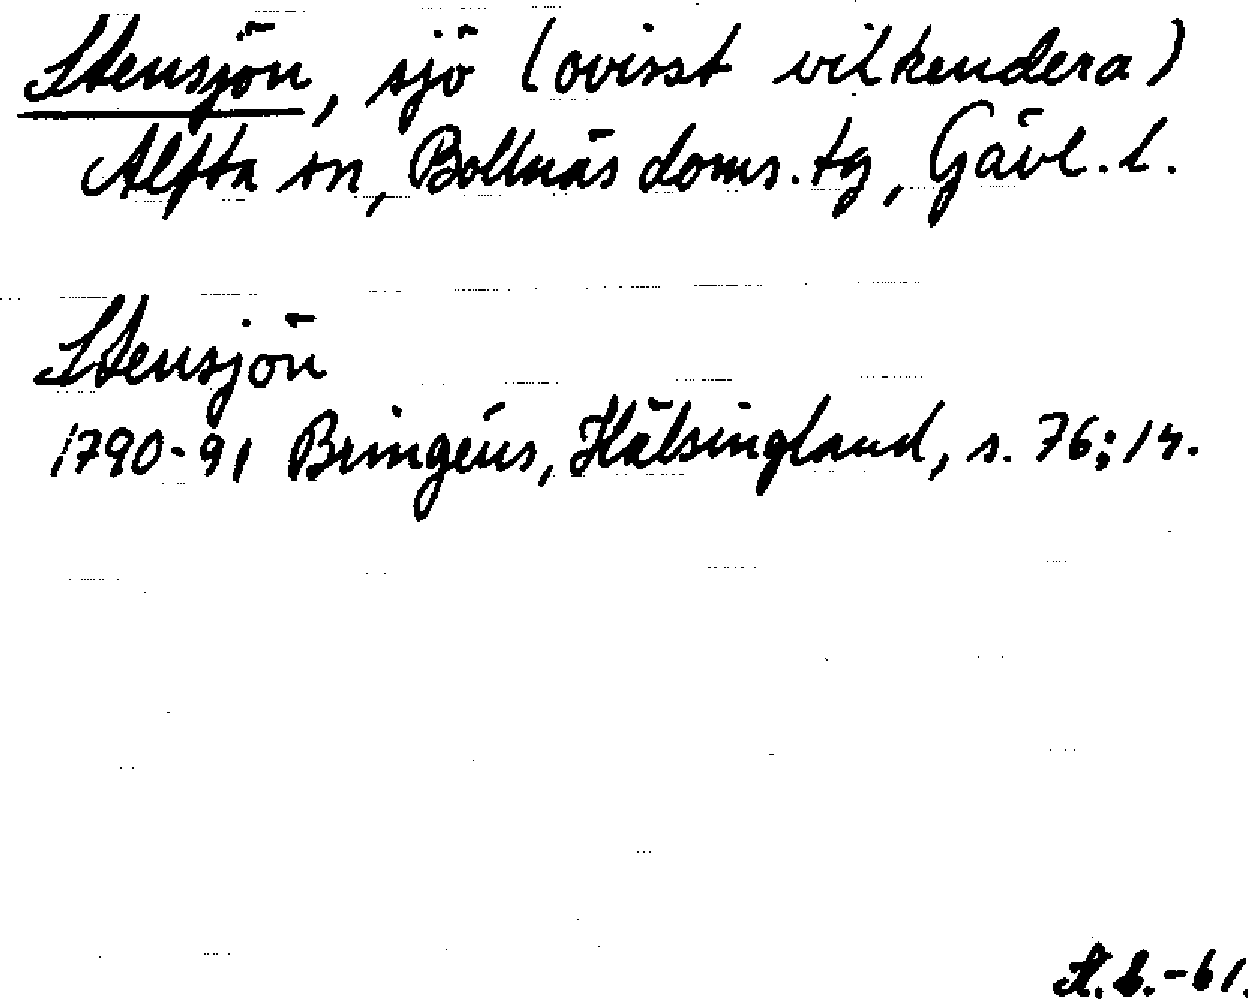 Stensjön, sjö (ovisst vilkendera)
Alfta sn, Bollnäs doms. tg, Gävl. l.
Stensjön
1790-91 Bringéus, Hälsingland, s. 76; 14.
-61.